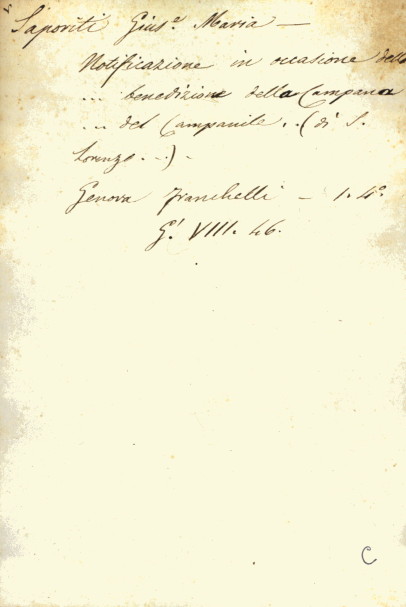 Saporiti Gius.e Maria —
Notificazione in occasione della
... benedizione della Campana
... del Campanile .. (di S.
Lorenzo ...) -
Genova Franchelli — 1. 4º.
G.1 VIII. 46.
C